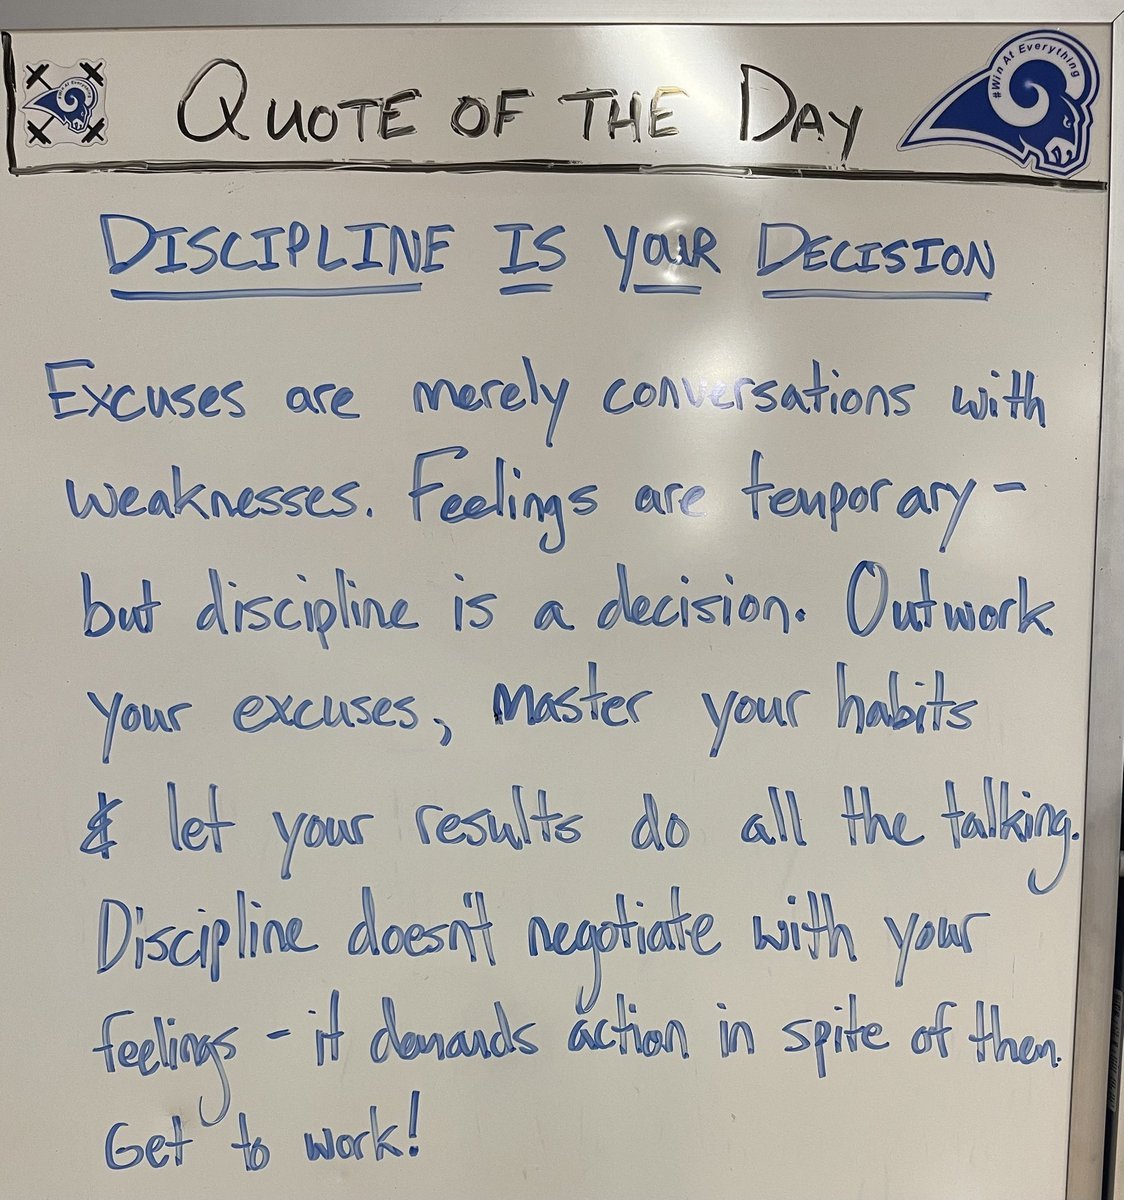 QUOTE OF THE DAY
#Win At Everything
DISCIPLINE IS YOUR DECISION
Excuses are merely conversations with
weaknesses. Feelings are temporary -
but discipline is a decision. Outwork
your excuses, master your habits
& let your results do all the talking.
Discipline doesn't negotiate with your
feelings - it demands action in spite of them.
Get to work!